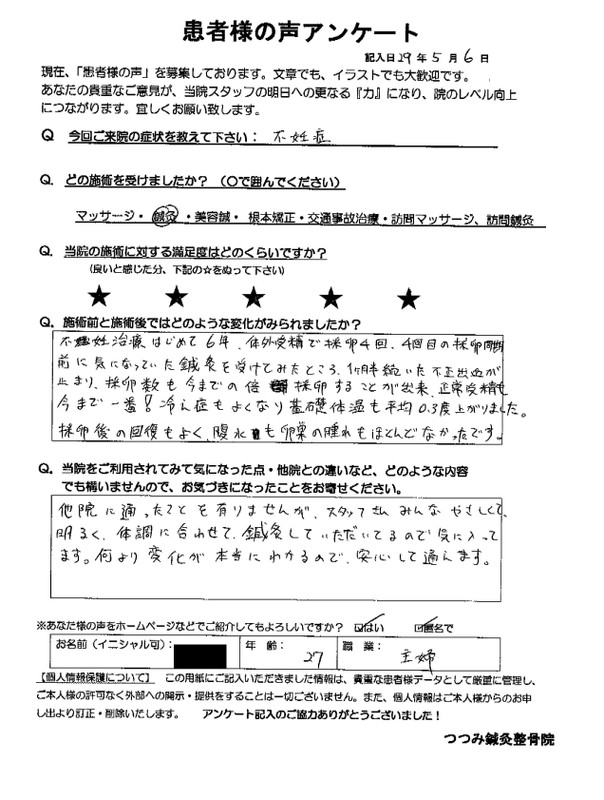 患者様の声アンケート
記入日29年5月6日
現在、「患者様の声」を募集しております。文章でも、イラストでも大歓迎です。
あなたの貴重なご意見が、当院スタッフの明日への更なる『力』になり、院のレベル向上
につながります。宜しくお願い致します。
Q 今回ご来院の症状を教えて下さい： 不妊症
Q. どの施術を受けましたか？（○で囲んでください）
マッサージ・鍼灸・美容鍼・根本矯正・交通事故治療・訪問マッサージ、訪問鍼灸
Q. 当院の施術に対する満足度はどのくらいですか？
（良いと感じた分、下記の☆をぬって下さい）
★ ★ ★ ★ ★
Q. 施術前と施術後ではどのような変化がみられましたか？
不妊治療はじめて6年、体外受精で採卵4回、4回目の採卵周期
前に気になっていた鍼灸を受けてみたところ、1ヶ月半続いた不正出血が
止まり、採卵数も今までの倍採卵することが出来、正常受精も
今まで一番！冷え症もよくなり基礎体温も平均0.3度上がりました。
採卵後の回復もよく、腹水も卵巣の腫れもほとんどなかったです。
Q. 当院をご利用されてみて気になった点・他院との違いなど、どのような内容
でも構いませんので、お気づきになったことをお寄せください。
他院に通ったことも有りませんが、スタッフさんみんなやさしくて、
明るく、体調に合わせて、鍼灸していただいてるので気に入って
ます。何より変化が本当にわかるので、安心して通えます。
※あなた様の声をホームページなどでご紹介してもよろしいですか？ ☑はい ☑匿名で
お名前（イニシャル可）： 年齢： 27 職業： 主婦
【個人情報保護について】 この用紙にご記入いただきました情報は、貴重な患者様データとして厳重に管理し、
ご本人様の許可なく外部への開示・提供をすることは一切ございません。また、個人情報はご本人様からのお申
し出より訂正・削除いたします。 アンケート記入のご協力ありがとうございました！
つつみ鍼灸整骨院